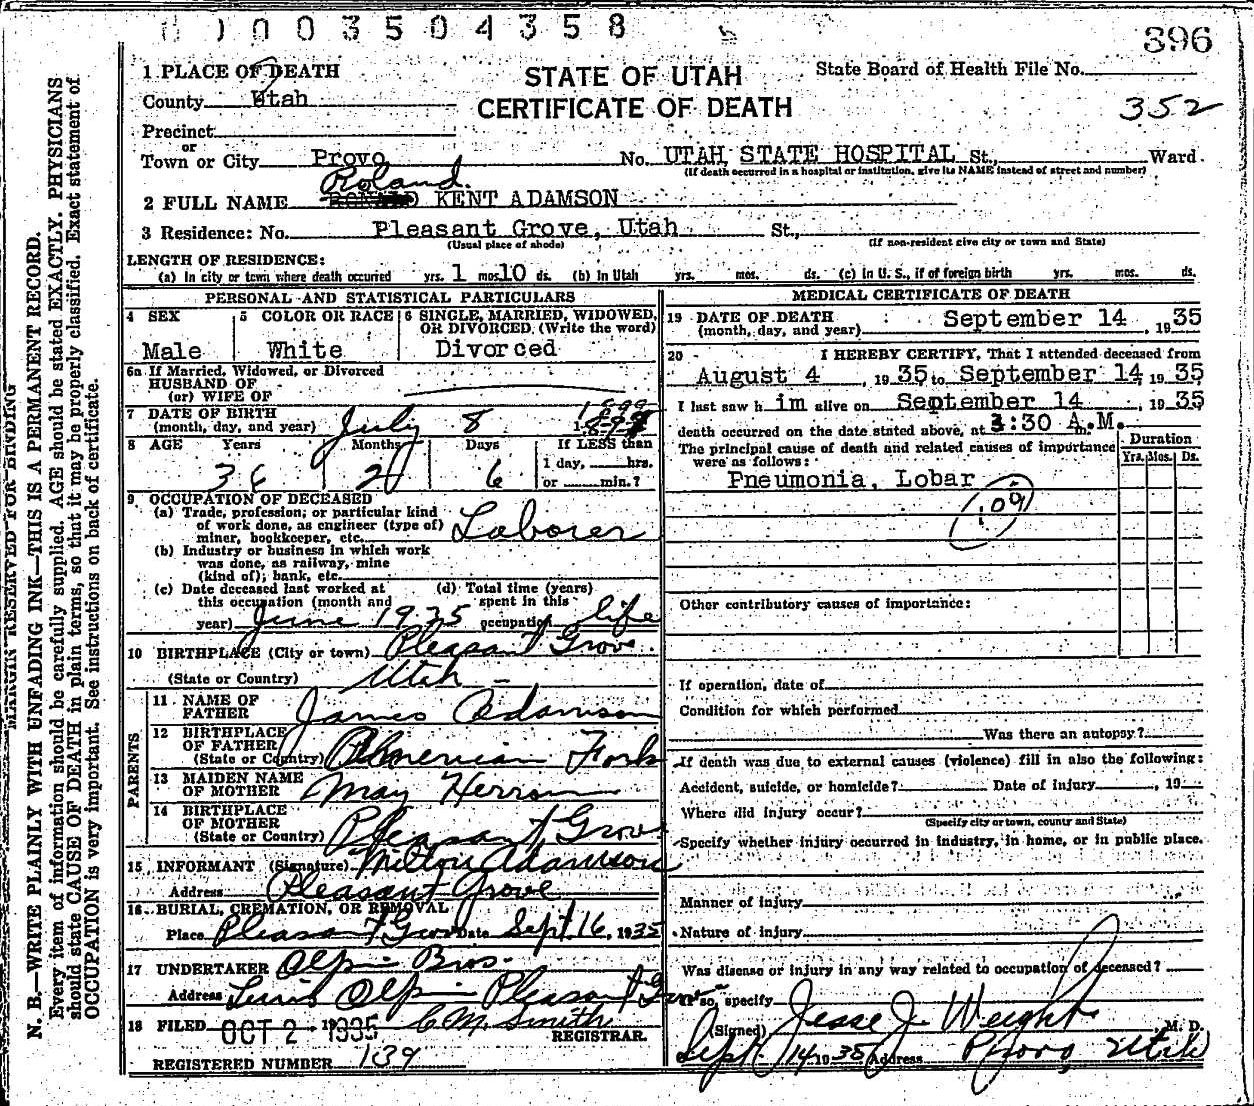 0003504358
396
1 PLACE OF DEATH
STATE OF UTAH
State Board of Health File No.
County Utah
CERTIFICATE OF DEATH
352
Precinct
or
Town or City Provo No. UTAH STATE HOSPITAL St., Ward.
(If death occurred in a hospital or institution, give its NAME instead of street and number)
Roland
2 FULL NAME KENT ADAMSON
3 Residence: No. Pleasant Grove, Utah St.,
(Usual place of abode) (If non-resident give city or town and State)
LENGTH OF RESIDENCE:
(a) In city or town where death occurred yrs. 1 mos. 10 ds. (b) In Utah yrs. mos. ds. (c) In U. S., if of foreign birth yrs. mos. ds.
PERSONAL AND STATISTICAL PARTICULARS
4 SEX 5 COLOR OR RACE 6 SINGLE, MARRIED, WIDOWED, OR DIVORCED (Write the word)
Male White Divorced
6a If Married, Widowed, or Divorced
HUSBAND OF
(or) WIFE OF
7 DATE OF BIRTH
(month, day, and year) July 8 1899
8 AGE Years Months Days If LESS than
1 day, hrs.
or min.?
36 2 6
9 OCCUPATION OF DECEASED
(a) Trade, profession, or particular kind
of work done, as engineer (type of)
miner, bookkeeper, etc. Laborer
(b) Industry or business in which work
was done, as railway, mine
(kind of); bank, etc.
(c) Date deceased last worked at (d) Total time (years)
this occupation (month and spent in this
year) June 1935 occupation life
10 BIRTHPLACE (City or town) Pleasant Grove
(State or Country) Utah
11 NAME OF
FATHER James Adamson
12 BIRTHPLACE
OF FATHER
(State or Country) American Fork
PARENTS
13 MAIDEN NAME
OF MOTHER May Herron
14 BIRTHPLACE
OF MOTHER
(State or Country) Pleasant Grove
15 INFORMANT (Signature) Milton Adamson
Address Pleasant Grove
16 BURIAL, CREMATION, OR REMOVAL
Place Pleasant Grove Date Sept 16, 1935
17 UNDERTAKER Olpin Bros.
Address Olpin Pleasant Gr
18 FILED OCT 2 1935 C M Smith
REGISTRAR.
REGISTERED NUMBER 139
MEDICAL CERTIFICATE OF DEATH
19 DATE OF DEATH
(month, day, and year) September 14, 1935
20 I HEREBY CERTIFY, That I attended deceased from
August 4, 1935 to September 14, 1935
I last saw him alive on September 14, 1935
death occurred on the date stated above, at 3:30 A.M.
m.
The principal cause of death and related causes of importance
were as follows:
Duration
Yrs. Mos. Ds.
Pneumonia, Lobar
109
Other contributory causes of importance:
If operation, date of
Condition for which performed
Was there an autopsy?
If death was due to external causes (violence) fill in also the following:
Accident, suicide, or homicide? Date of injury , 19
Where did injury occur?
(Specify city or town, county and State)
Specify whether injury occurred in industry, in home, or in public place.
Manner of injury
Nature of injury
Was disease or injury in any way related to occupation of deceased?
If so, specify
(Signed) Jesse J. Weight, M. D.
Sept. 14 1935 Address Provo, Utah
MARGIN RESERVED FOR BINDING
N. B.—WRITE PLAINLY WITH UNFADING INK—THIS IS A PERMANENT RECORD.
Every item of information should be carefully supplied. AGE should be stated EXACTLY. PHYSICIANS
should state CAUSE OF DEATH in plain terms, so that it may be properly classified. Exact statement of
OCCUPATION is very important. See instructions on back of certificate.